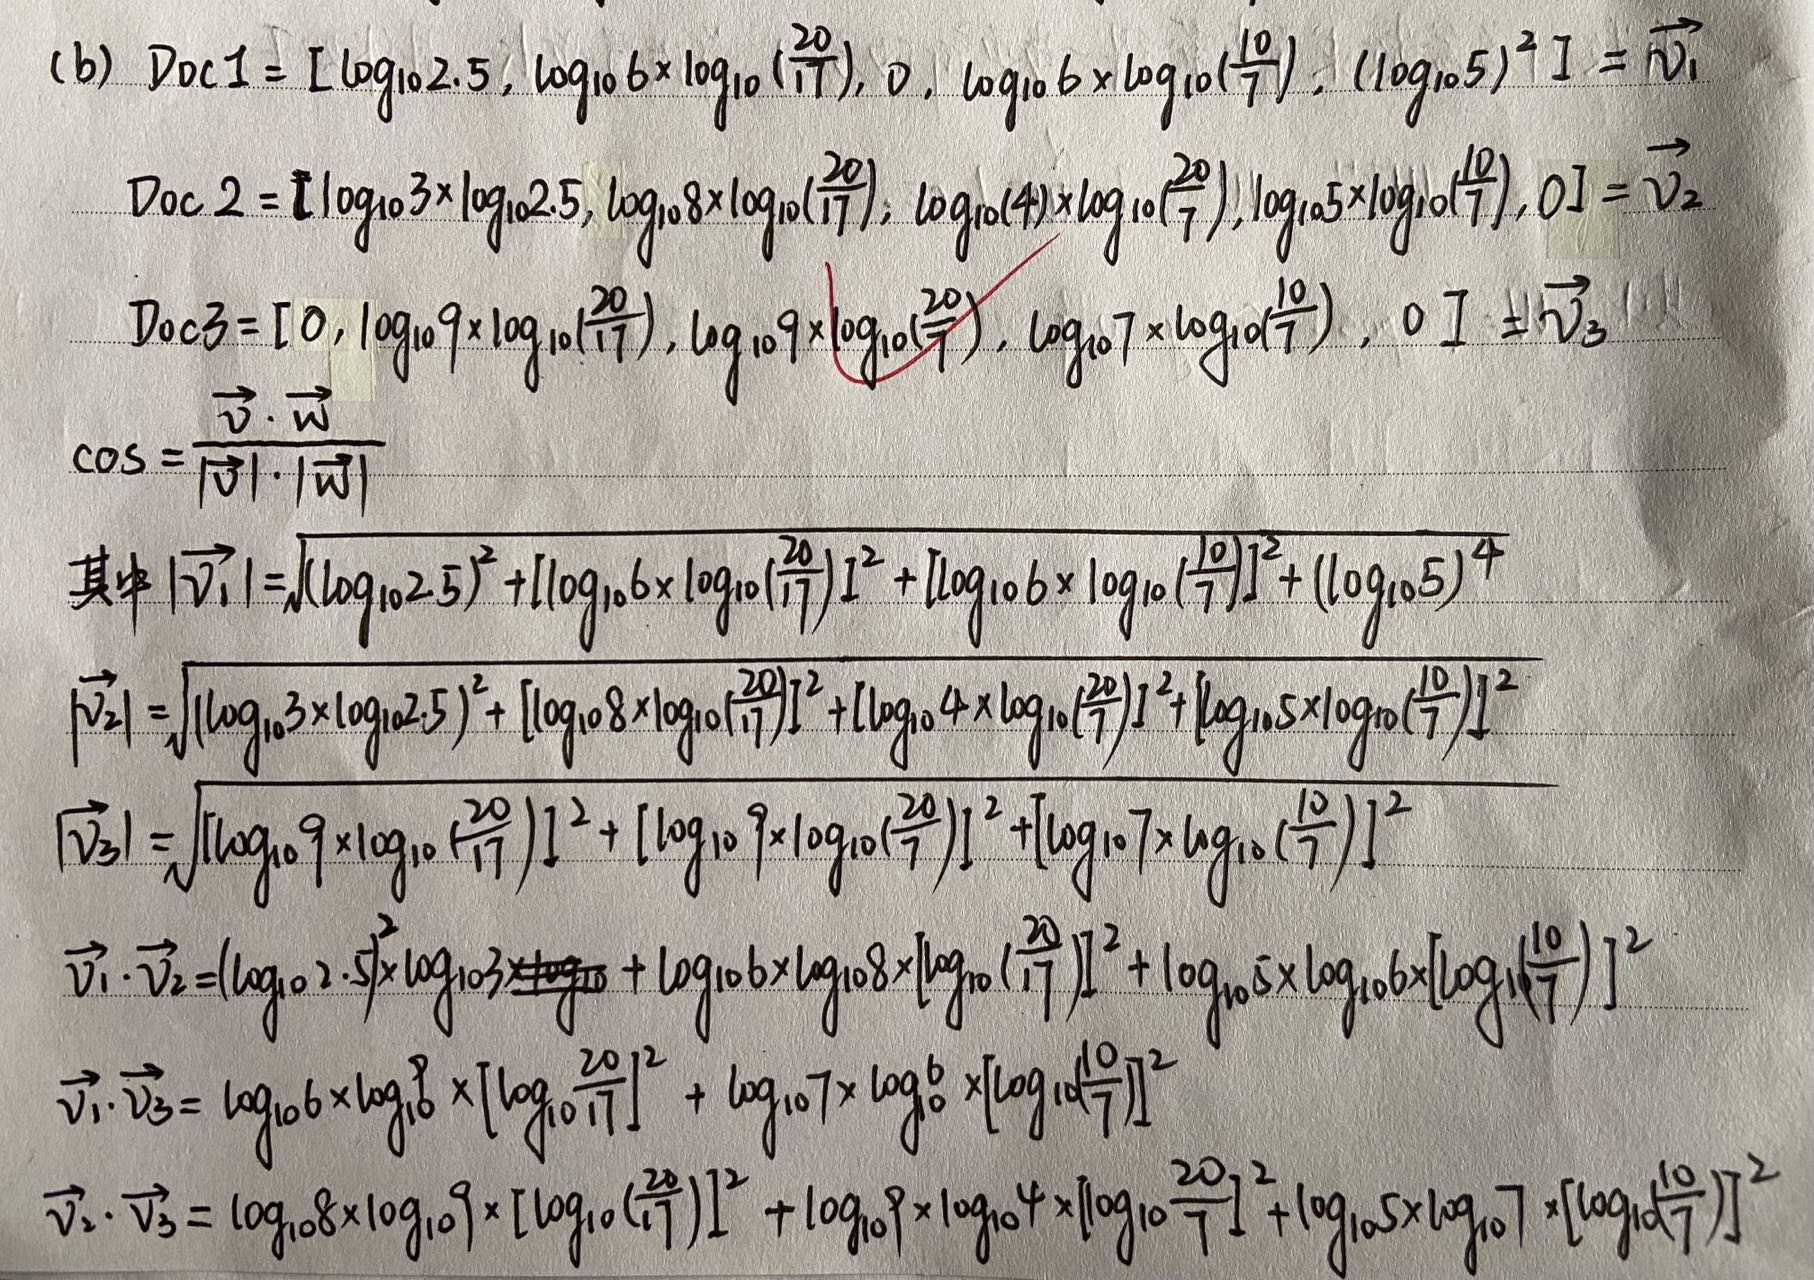 (b) Doc1 = [log₁₀2.5, log₁₀6×log₁₀(20/17), 0, log₁₀6×log₁₀(10/7), (log₁₀5)²] = v₁⃗
Doc2 = [log₁₀3×log₁₀2.5, log₁₀8×log₁₀(20/17), log₁₀(4)×log₁₀(20/7), log₁₀5×log₁₀(10/7), 0] = v₂⃗
Doc3 = [0, log₁₀9×log₁₀(20/17), log₁₀9×log₁₀(20/7), log₁₀7×log₁₀(10/7), 0] = v₃⃗
cos = v⃗·w⃗ / |v⃗|·|w⃗|
其中 |v₁⃗| = √((log₁₀2.5)² + [log₁₀6×log₁₀(20/17)]² + [log₁₀6×log₁₀(10/7)]² + (log₁₀5)⁴)
|v₂⃗| = √((log₁₀3×log₁₀2.5)² + [log₁₀8×log₁₀(20/17)]² + [log₁₀4×log₁₀(20/7)]² + [log₁₀5×log₁₀(10/7)]²)
|v₃⃗| = √([log₁₀9×log₁₀(20/17)]² + [log₁₀9×log₁₀(20/7)]² + [log₁₀7×log₁₀(10/7)]²)
v₁⃗·v₂⃗ = (log₁₀2.5)²×log₁₀3 + log₁₀6×log₁₀8×[log₁₀(20/17)]² + log₁₀5×log₁₀6×[log₁₀(10/7)]²
v₁⃗·v₃⃗ = log₁₀6×log₁₀9×[log₁₀20/17]² + log₁₀7×log₁₀6×[log₁₀(10/7)]²
v₂⃗·v₃⃗ = log₁₀8×log₁₀9×[log₁₀(20/17)]² + log₁₀9×log₁₀4×[log₁₀20/7]² + log₁₀5×log₁₀7×[log₁₀(10/7)]²